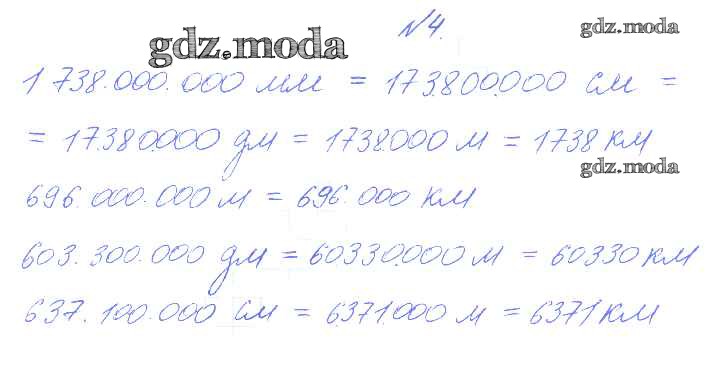 №4.
gdz.moda
gdz.moda
1 738.000.000 мм = 173800.000 см =
= 17.380.000 дм = 1738.000 м = 1738 км
gdz.moda
696.000.000 м = 696.000 км
603.300.000 дм = 60330.000 м = 60330 км
637.100.000 см = 6371.000 м = 6371 км